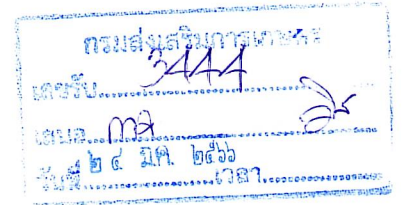 กรมส่งเสริมการเกษตร
เลขรับ 3444
เสนอ
วันที่ ๒๔ มี.ค. ๒๕๖๖ เวลา